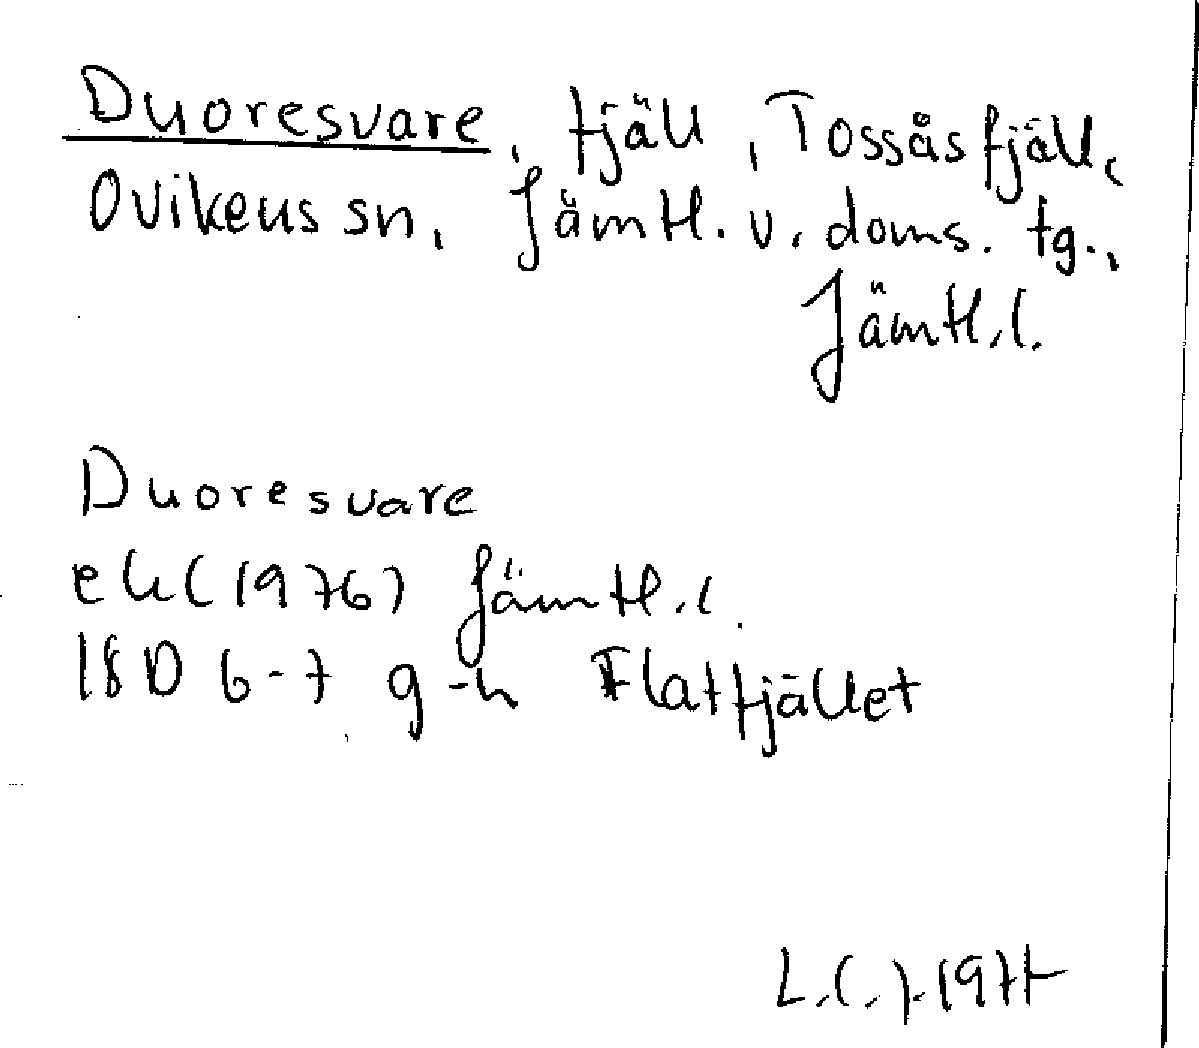 Duoresvare, fjäll, Tossåsfjäll,
Ovikens sn, Jämtl. v. doms. tg.,
Jämtl.l.
Duoresvare
ek (1976) Jämtl.l.
18D 6-7 g-h Flatfjället
1977